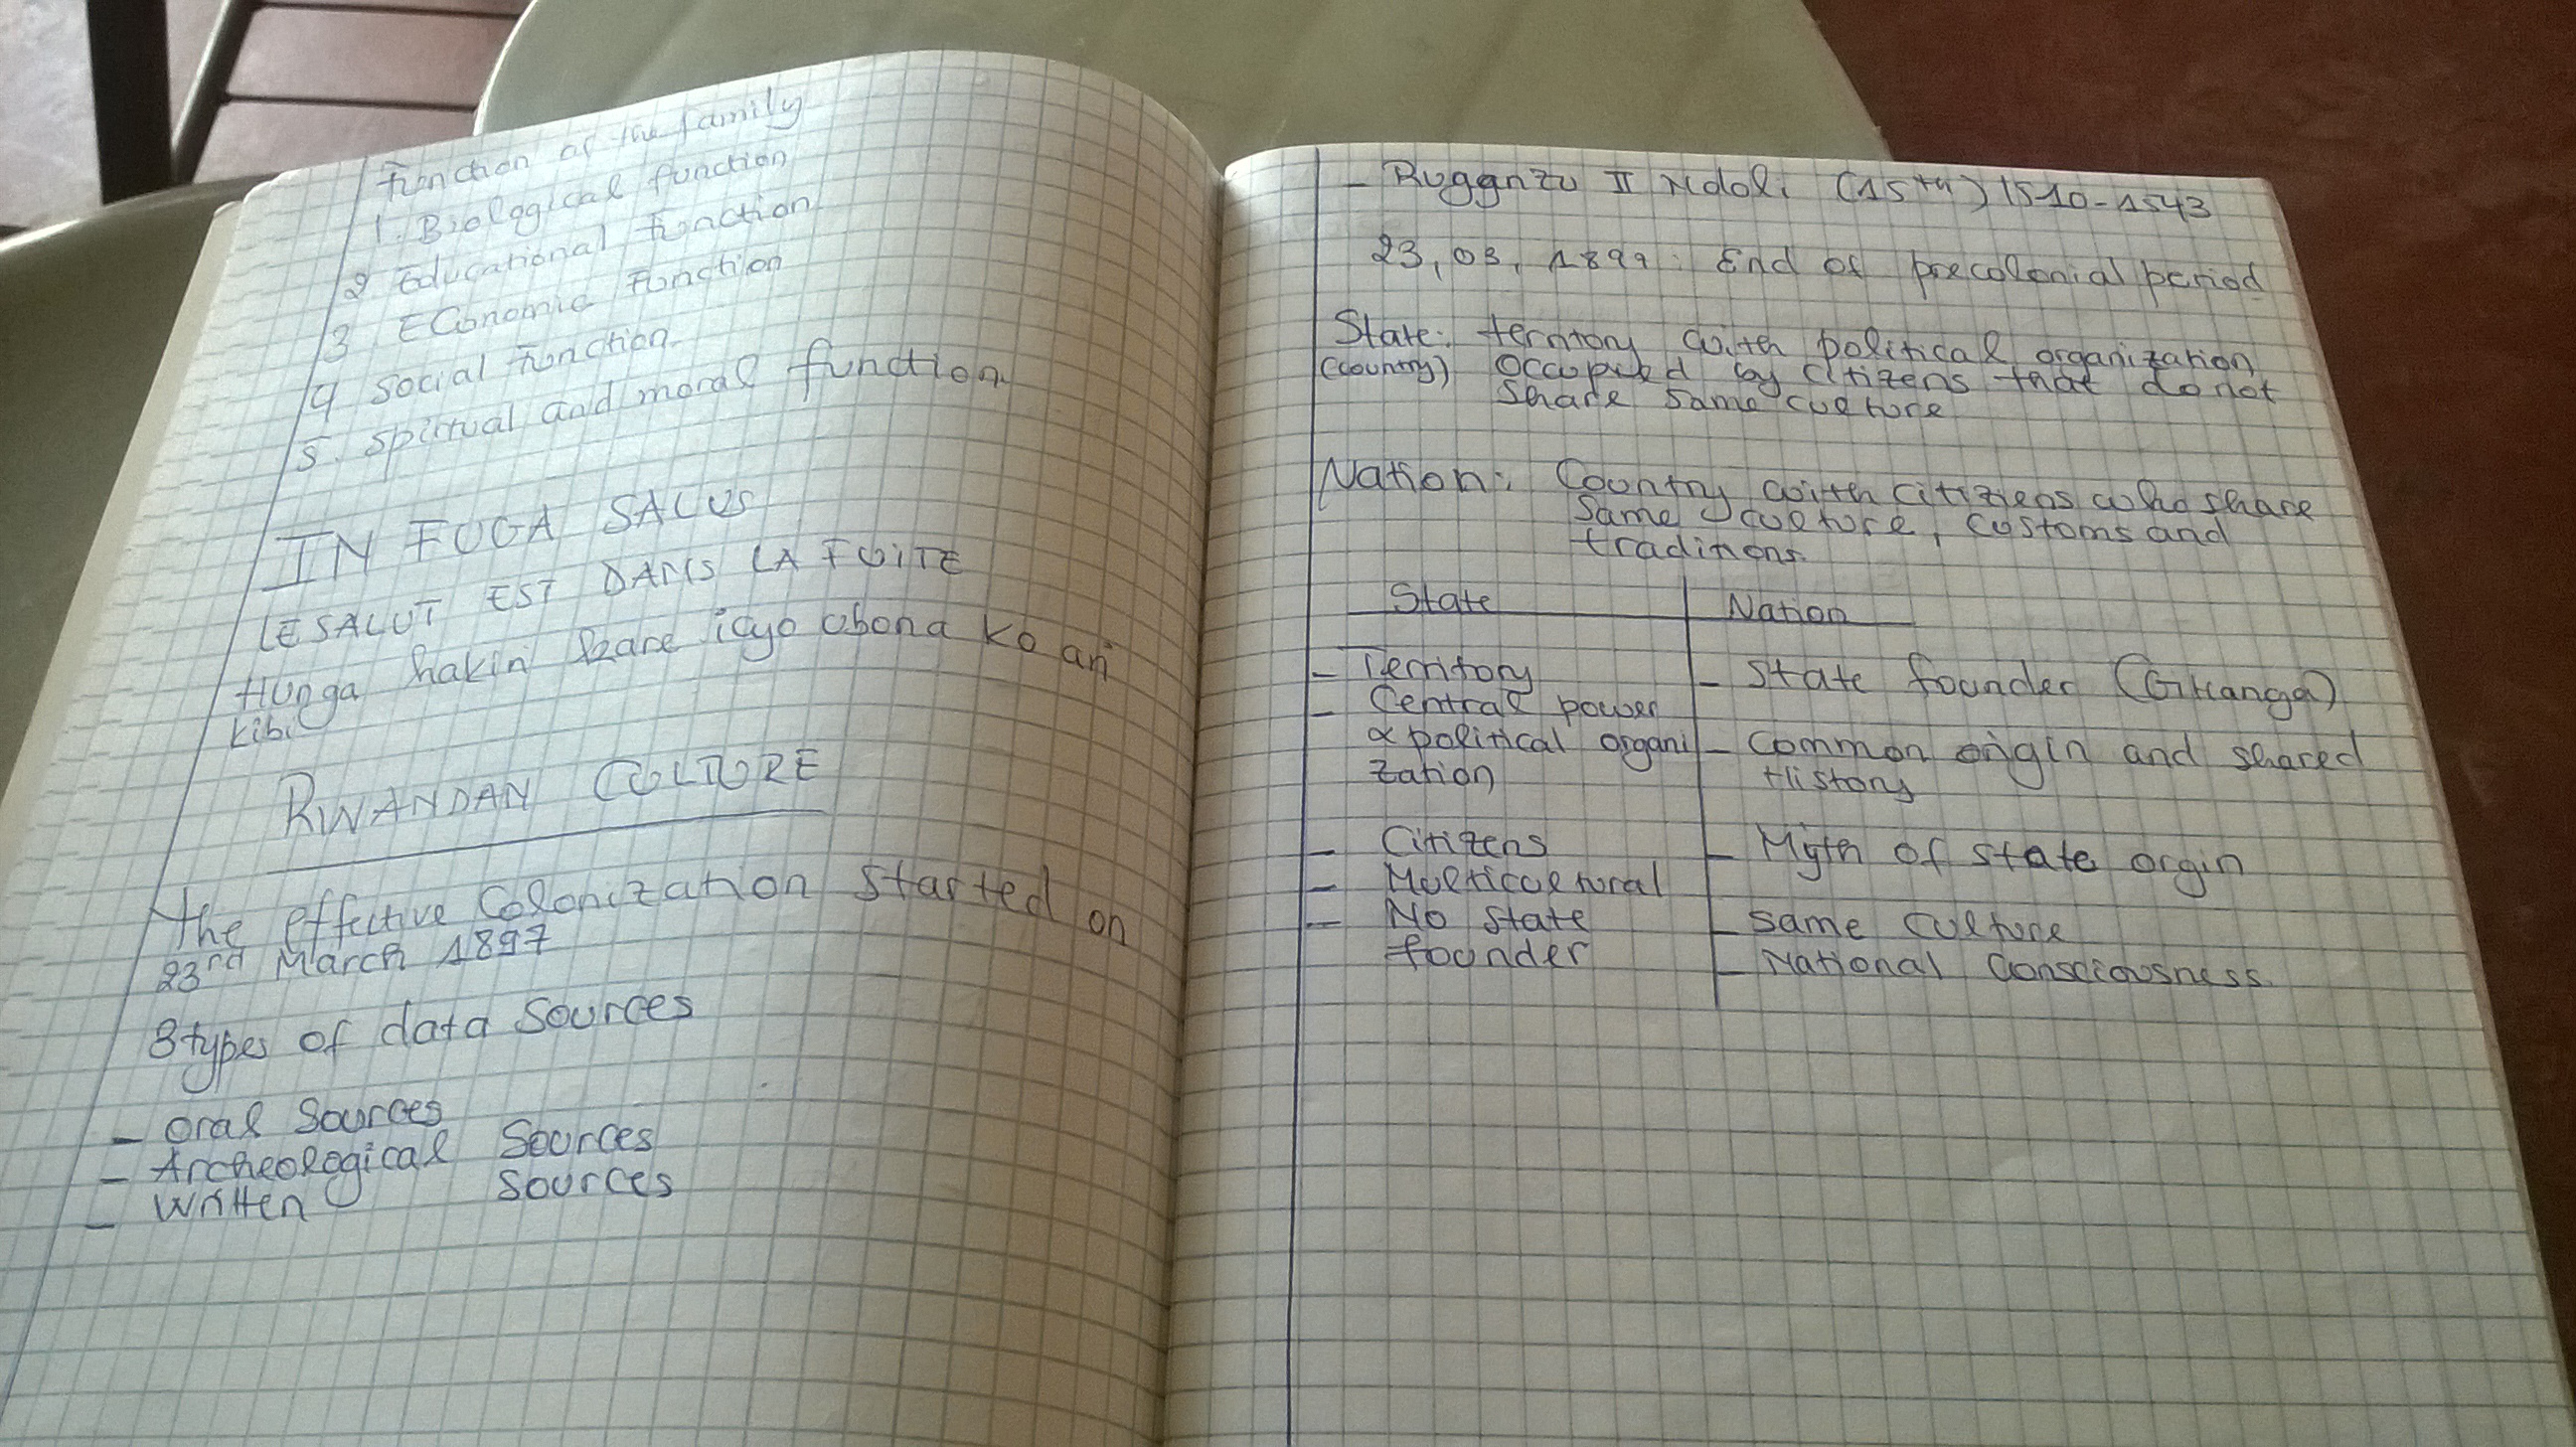 Function of the family
1. Biological function
2 Educational Function
3. Economic Function
4 Social Function.
5. Spirtual and moral function
IN FUGA SALUS
LE SALUT EST DANS LA FUITE
Hunga hakiri kare icyo ubona ko ari
kibi
RWANDAN CULTURE
The effective Colonization started on
23rd March 1897
3 types of data Sources
- Oral Sources
- Archeological Sources
- Written Sources
- Ruganzu II Ndoli (15th) 1510-1543
23, 03, 1899: End of precolonial period
State: territory with political organization
(country) Occupied by citizens that do not
Share same culture
Nation: Country with citiziens who share
Same culture, customs and
traditions.
State Nation
- Territory - State founder (GIHanga)
- Central power
& political organi - Common origin and shared
zation History
- Citizens - Myth of state orgin
- Multicultural
- No state - same culture
founder - National Consciousness.